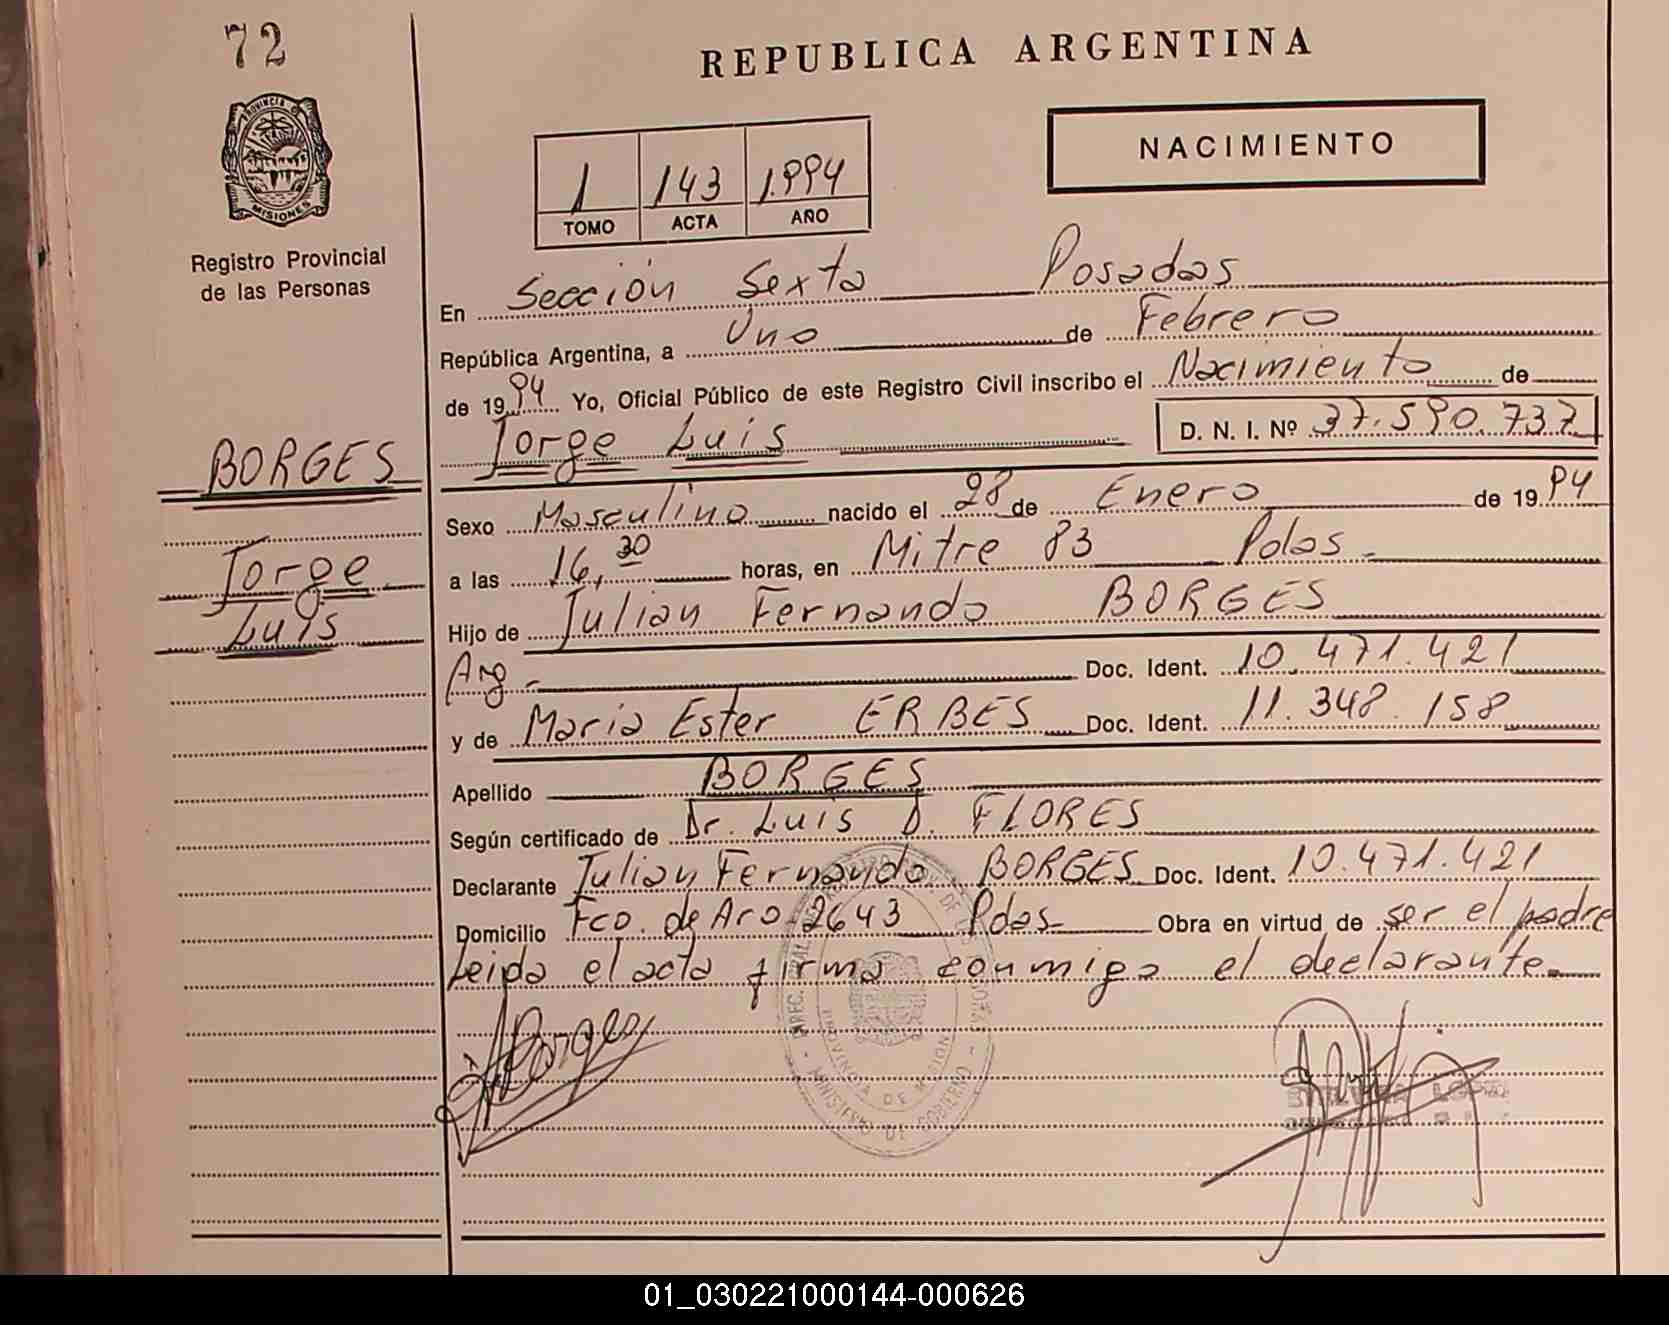 72
REPUBLICA ARGENTINA
PROVINCIA DE
MISIONES
Registro Provincial
de las Personas
1 143 1.994
TOMO ACTA AÑO
NACIMIENTO
En Sección Sexta Posadas
República Argentina, a Uno de Febrero
de 1994 Yo, Oficial Público de este Registro Civil inscribo el Nacimiento de
Jorge Luis D. N. I. Nº 37.590.737
BORGES
Jorge
Luis
Sexo Masculino nacido el 28 de Enero de 1994
a las 16,30 horas, en Mitre 83 Pdas.
Hijo de Julian Fernando BORGES
Arg. Doc. Ident. 10.471.421
y de Maria Ester ERBES Doc. Ident. 11.348.158
Apellido BORGES
Según certificado de Dr. Luis D. FLORES
Declarante Julian Fernando BORGES Doc. Ident. 10.471.421
Domicilio Fco. de Aro 2643 Pdas. Obra en virtud de ser el padre
Leida el acta firma conmigo el declarante.
Borges
MINISTERIO DE GOBIERNO
PROVINCIA DE MISIONES
01_030221000144-000626